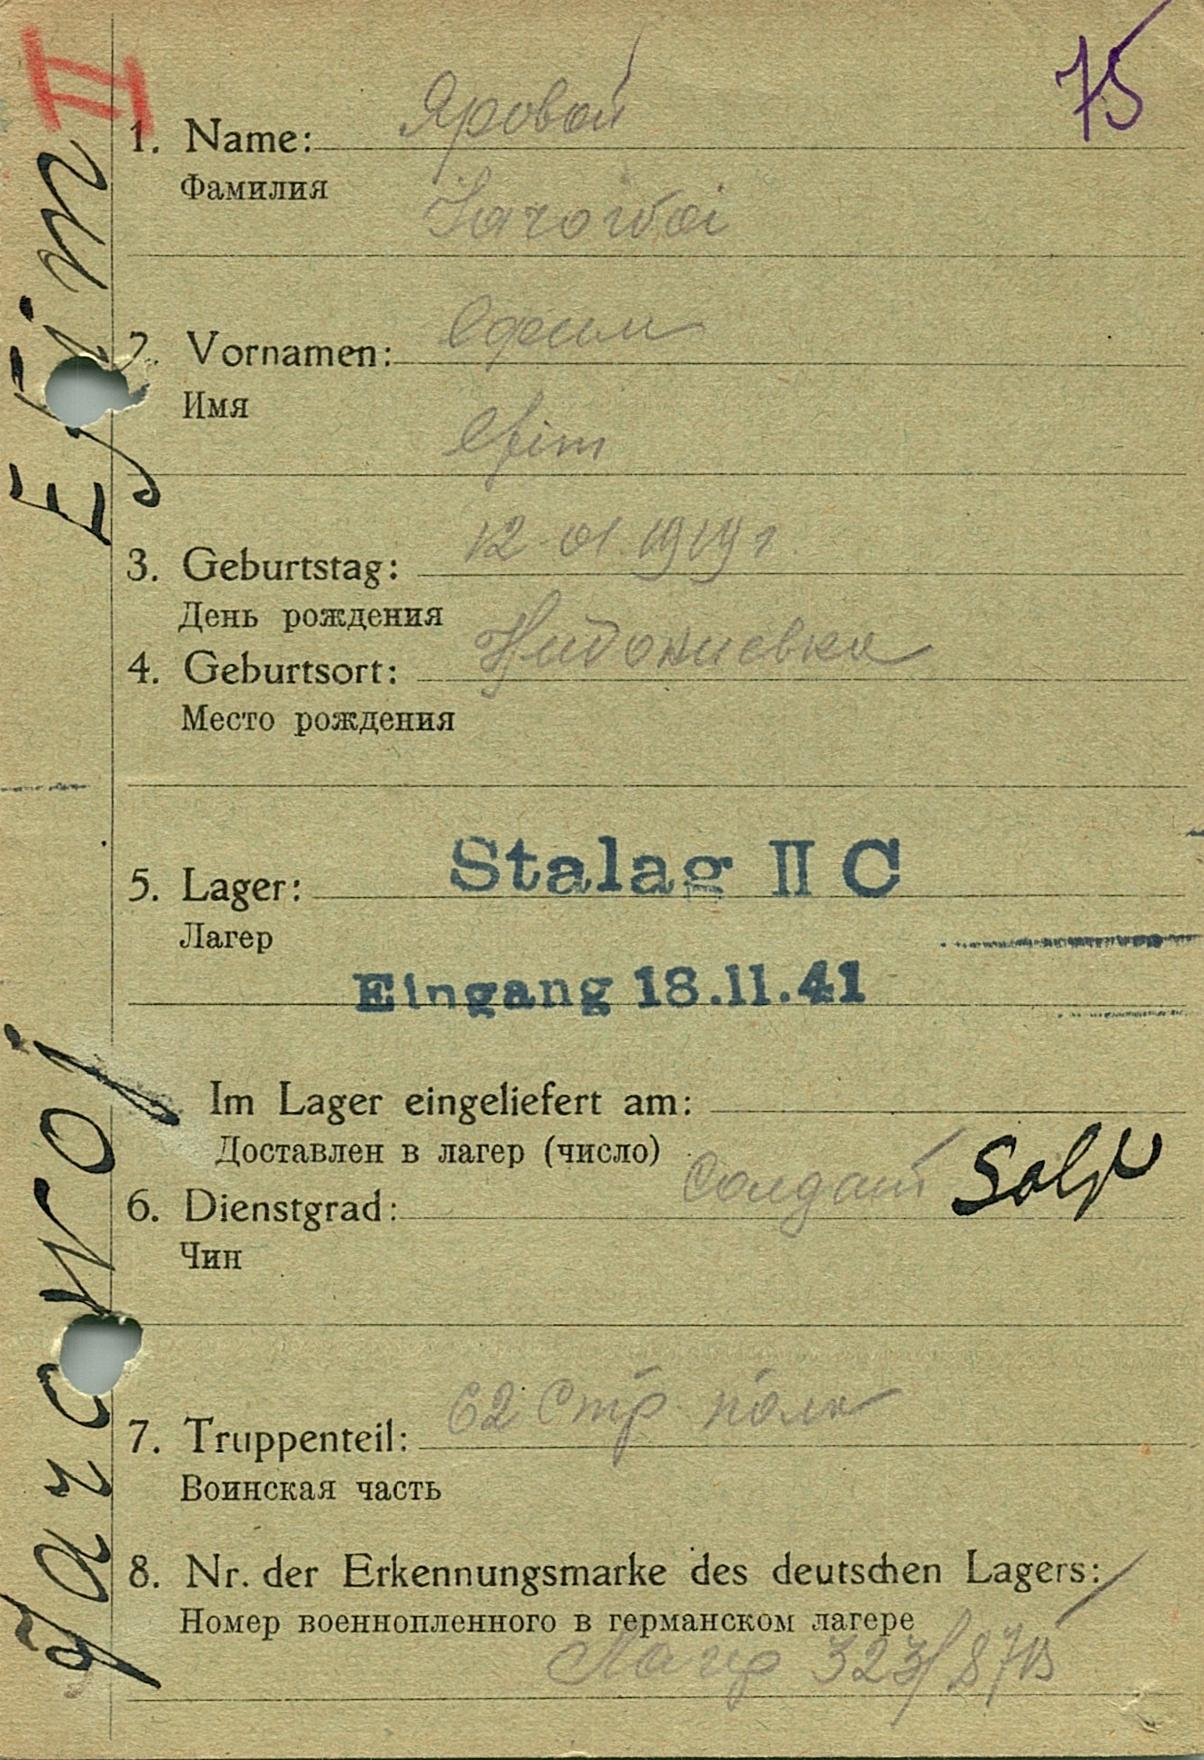 II
75
1. Name: Яровой
Фамилия
Jarowoi
2. Vornamen: Ефим
Имя
Efim
3. Geburtstag: 12 01 1919 г.
День рождения
4. Geburtsort:
Место рождения
5. Lager: Stalag II C
Лагер
Eingang 18.11.41
Im Lager eingeliefert am:
Доставлен в лагер (число)
6. Dienstgrad: солдат Sold
Чин
7. Truppenteil: 62 Стр полк
Воинская часть
8. Nr. der Erkennungsmarke des deutschen Lagers:
Номер военнопленного в германском лагере
Лагер 323/
Jarowoj Efim